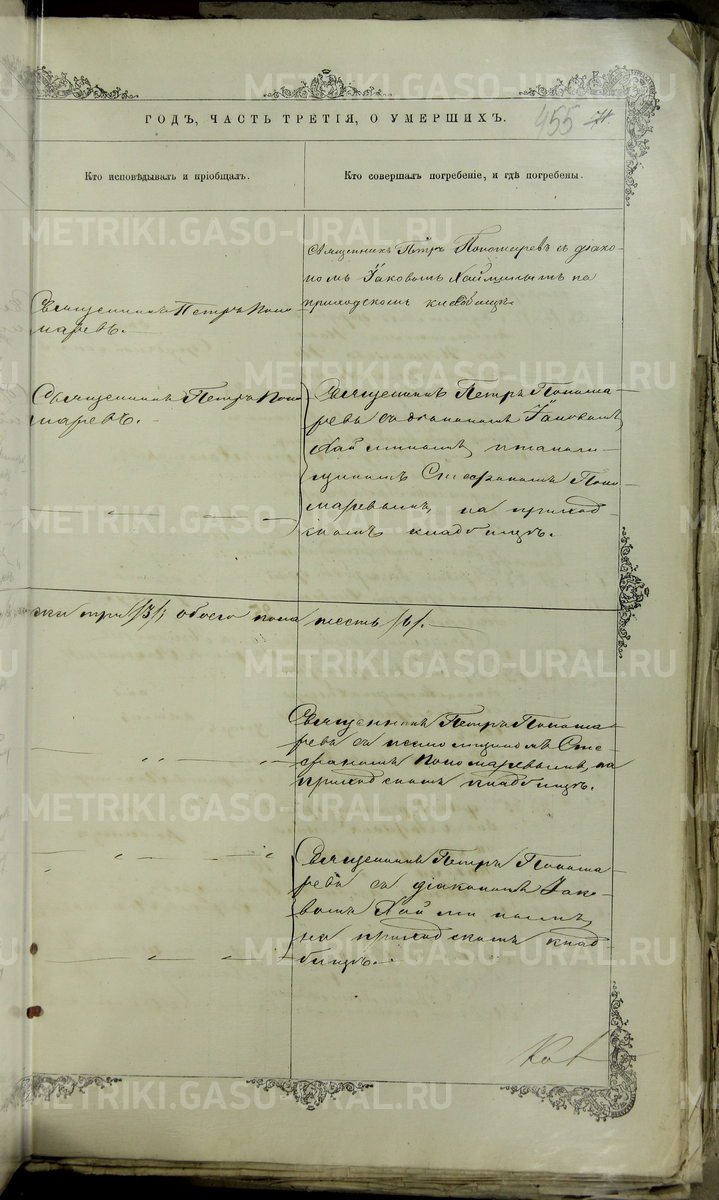 METRIKI.GASO-URAL.RU
ГОДЪ, ЧАСТЬ ТРЕТІЯ, О УМЕРШИХЪ.
455
Кто исповѣдывалъ и пріобщалъ.
Кто совершалъ погребеніе, и гдѣ погребены.
Священникъ Петръ Пономаревъ съ діако-
номъ Іаковомъ на
приходскомъ кладбищѣ.
Священникъ Петръ Поно-
маревъ.
Священникъ Петръ Поно-
маревъ.
Священникъ Петръ Понома-
ревъ съ діакономъ Іаковомъ
и псалом-
щикомъ Стефаномъ Поно-
маревымъ, на приход-
скомъ кладбищѣ.
три /3/, обоего пола шесть /6/.
Священникъ Петръ Понома-
ревъ съ псаломщикомъ Сте-
фаномъ Пономаревымъ, на
приходскомъ кладбищѣ.
Священникъ Петръ Понома-
ревъ съ діакономъ Іако-
вомъ
на приходскомъ клад-
бищѣ.